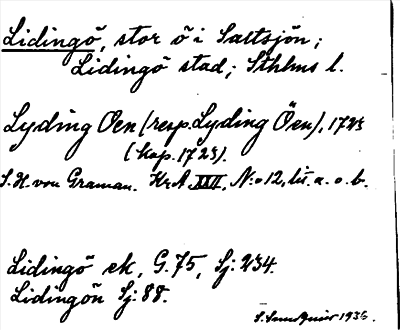 Lidingö, stor ö i Saltsjön;
Lidingö stad; Sthlms l.
Lyding Öen (resp. Lyding Öen), 1723
(kop. 1723).
S. H. von Graman. Kr. A. XXII, N:o 12, lit. a. o. b.
Lidingö ek, G. 75, Sj: 234.
Lidingön Sj: 88.
1936.